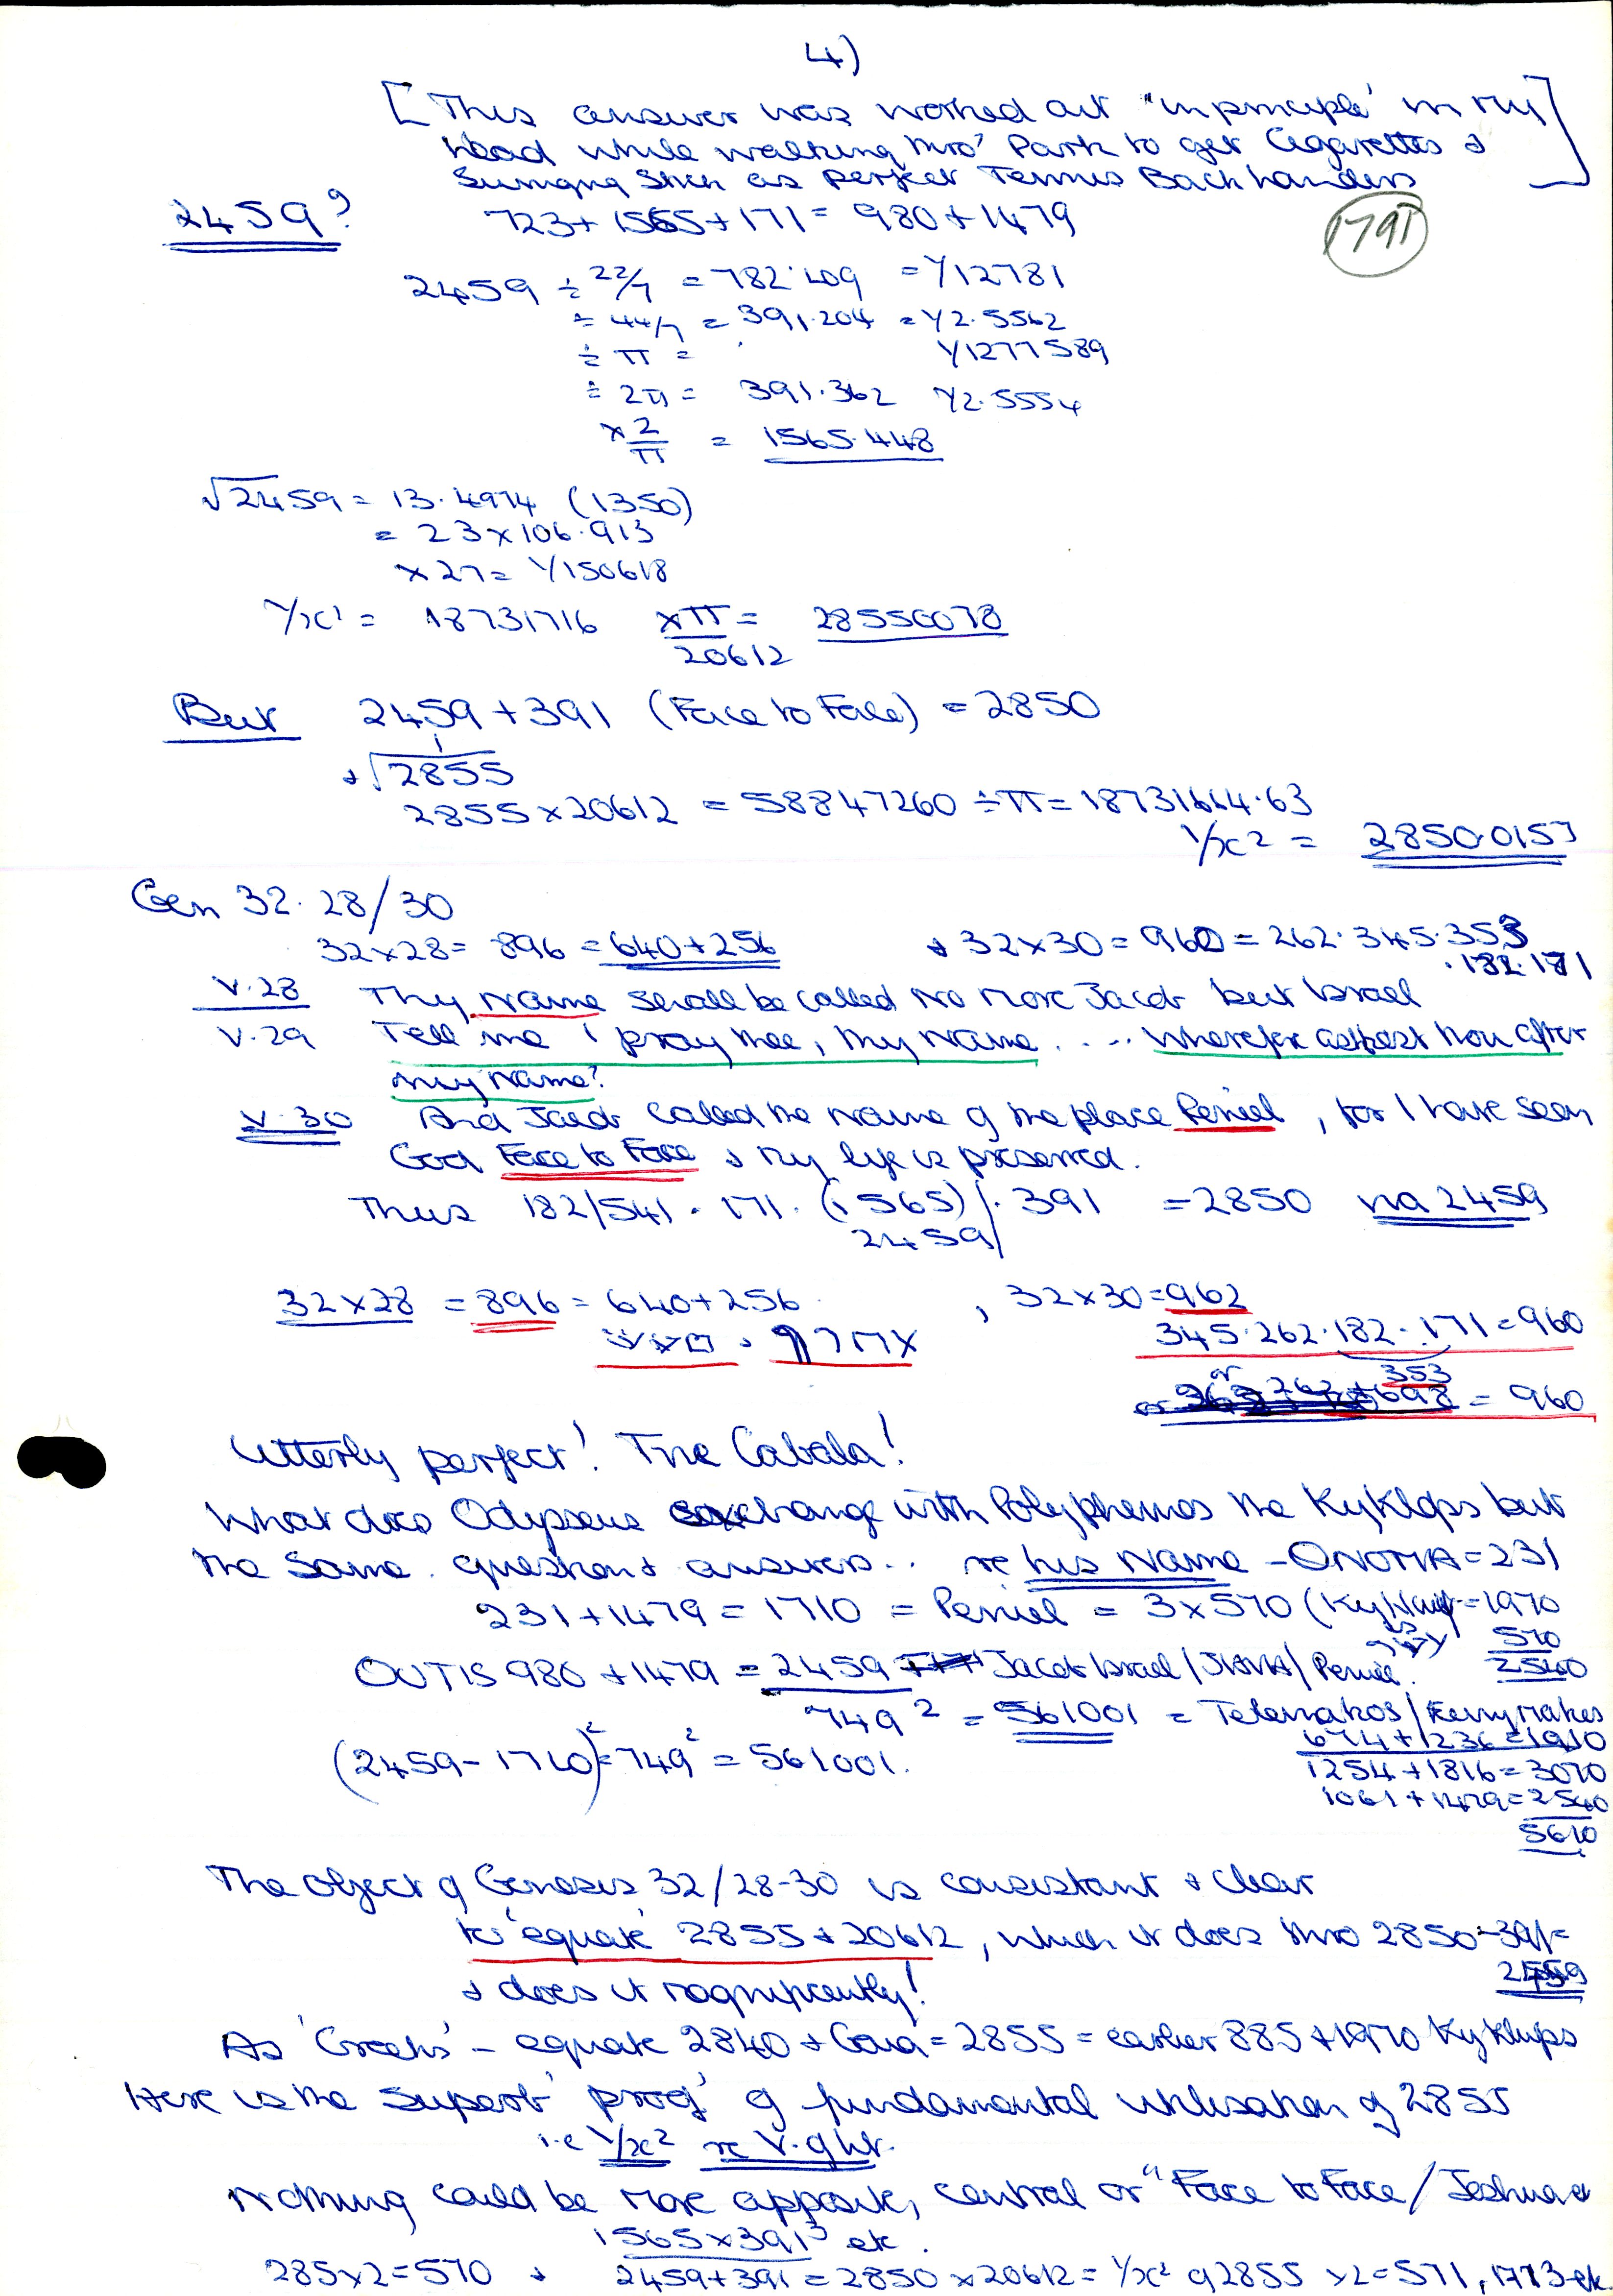 4)
[This answer was worked out "in principle' in my]
head while walking thro' Park to get Cigarettes &
Swinging Stick as perfect Tennis Backhanders
2459? 723 + 1565 + 171 = 980 + 1479
1791
2459 ÷ 22/7 = 782.409 = 1/12781
÷ 44/7 = 391.204 = 1/2.5562
÷ π = 1/1277589
÷ 2π = 391.362 1/2.5554
× 2/π = 1565.448
√2459 = 13.4974 (1350)
= 23 × 106.913
× 27 = 1/150618
1/x' = 18731716 ×π/20612 = 28550078
But 2459 + 391 (Face to Face) = 2850
& √2855
2855 × 20612 = 58847260 ÷ π = 18731664.63
1/x2 = 2850.0157
Gen 32. 28/30
32×28 = 896 = 640+256 & 32×30 = 960 = 262.345.353
.182.171
V.28 Thy name shall be called no more Jacob but Israel
V.29 Tell me I pray thee, thy name .... Wherefore askest thou after
my name?
V.30 And Jacob called the name of the place Peniel, for I have seen
God Face to Face & my life is preserved.
Thus 182/541.171.(1565)/.391 = 2850 via 2459
2459/
32×28 = 896 = 640+256. , 32×30 = 962
345.262.182.171 = 960
or 353
= 960
Utterly perfect! The Cabala!
What does Odysseus exchange with Polyphemos the Kyklops but
the same question & answers.. re his Name - ONOMA = 231
231 + 1479 = 1710 = Peniel = 3×570 = 1970
570
2540
OUTIS 980 + 1479 = 2459 Jacob Israel/ /Peniel.
749² = 561001 = Telemakos/
674+1236=1910
(2459-1710)² = 749² = 561001.
1254+1816=3070
1061+1479=2540
5610
The object of Genesis 32/28-30 is consistant & clear
to 'equate' 2855 & 20612, which it does thro 2850-391=
2459
& does it magnificently!
As 'Greeks' - equate 2840 + Gaia = 2855 = earlier 885+1970 Kyklops
Here is the superb 'proof' of fundamental utilisation of 2855
i.e 1/x2 re V.
Nothing could be more apposite, central or "Face to Face/Jeshua &
1565×391³ etc.
285×2=570 & 2459+391 = 2850 × 20612 = 1/x² of 2855 ×2 = 571, 1713 etc.